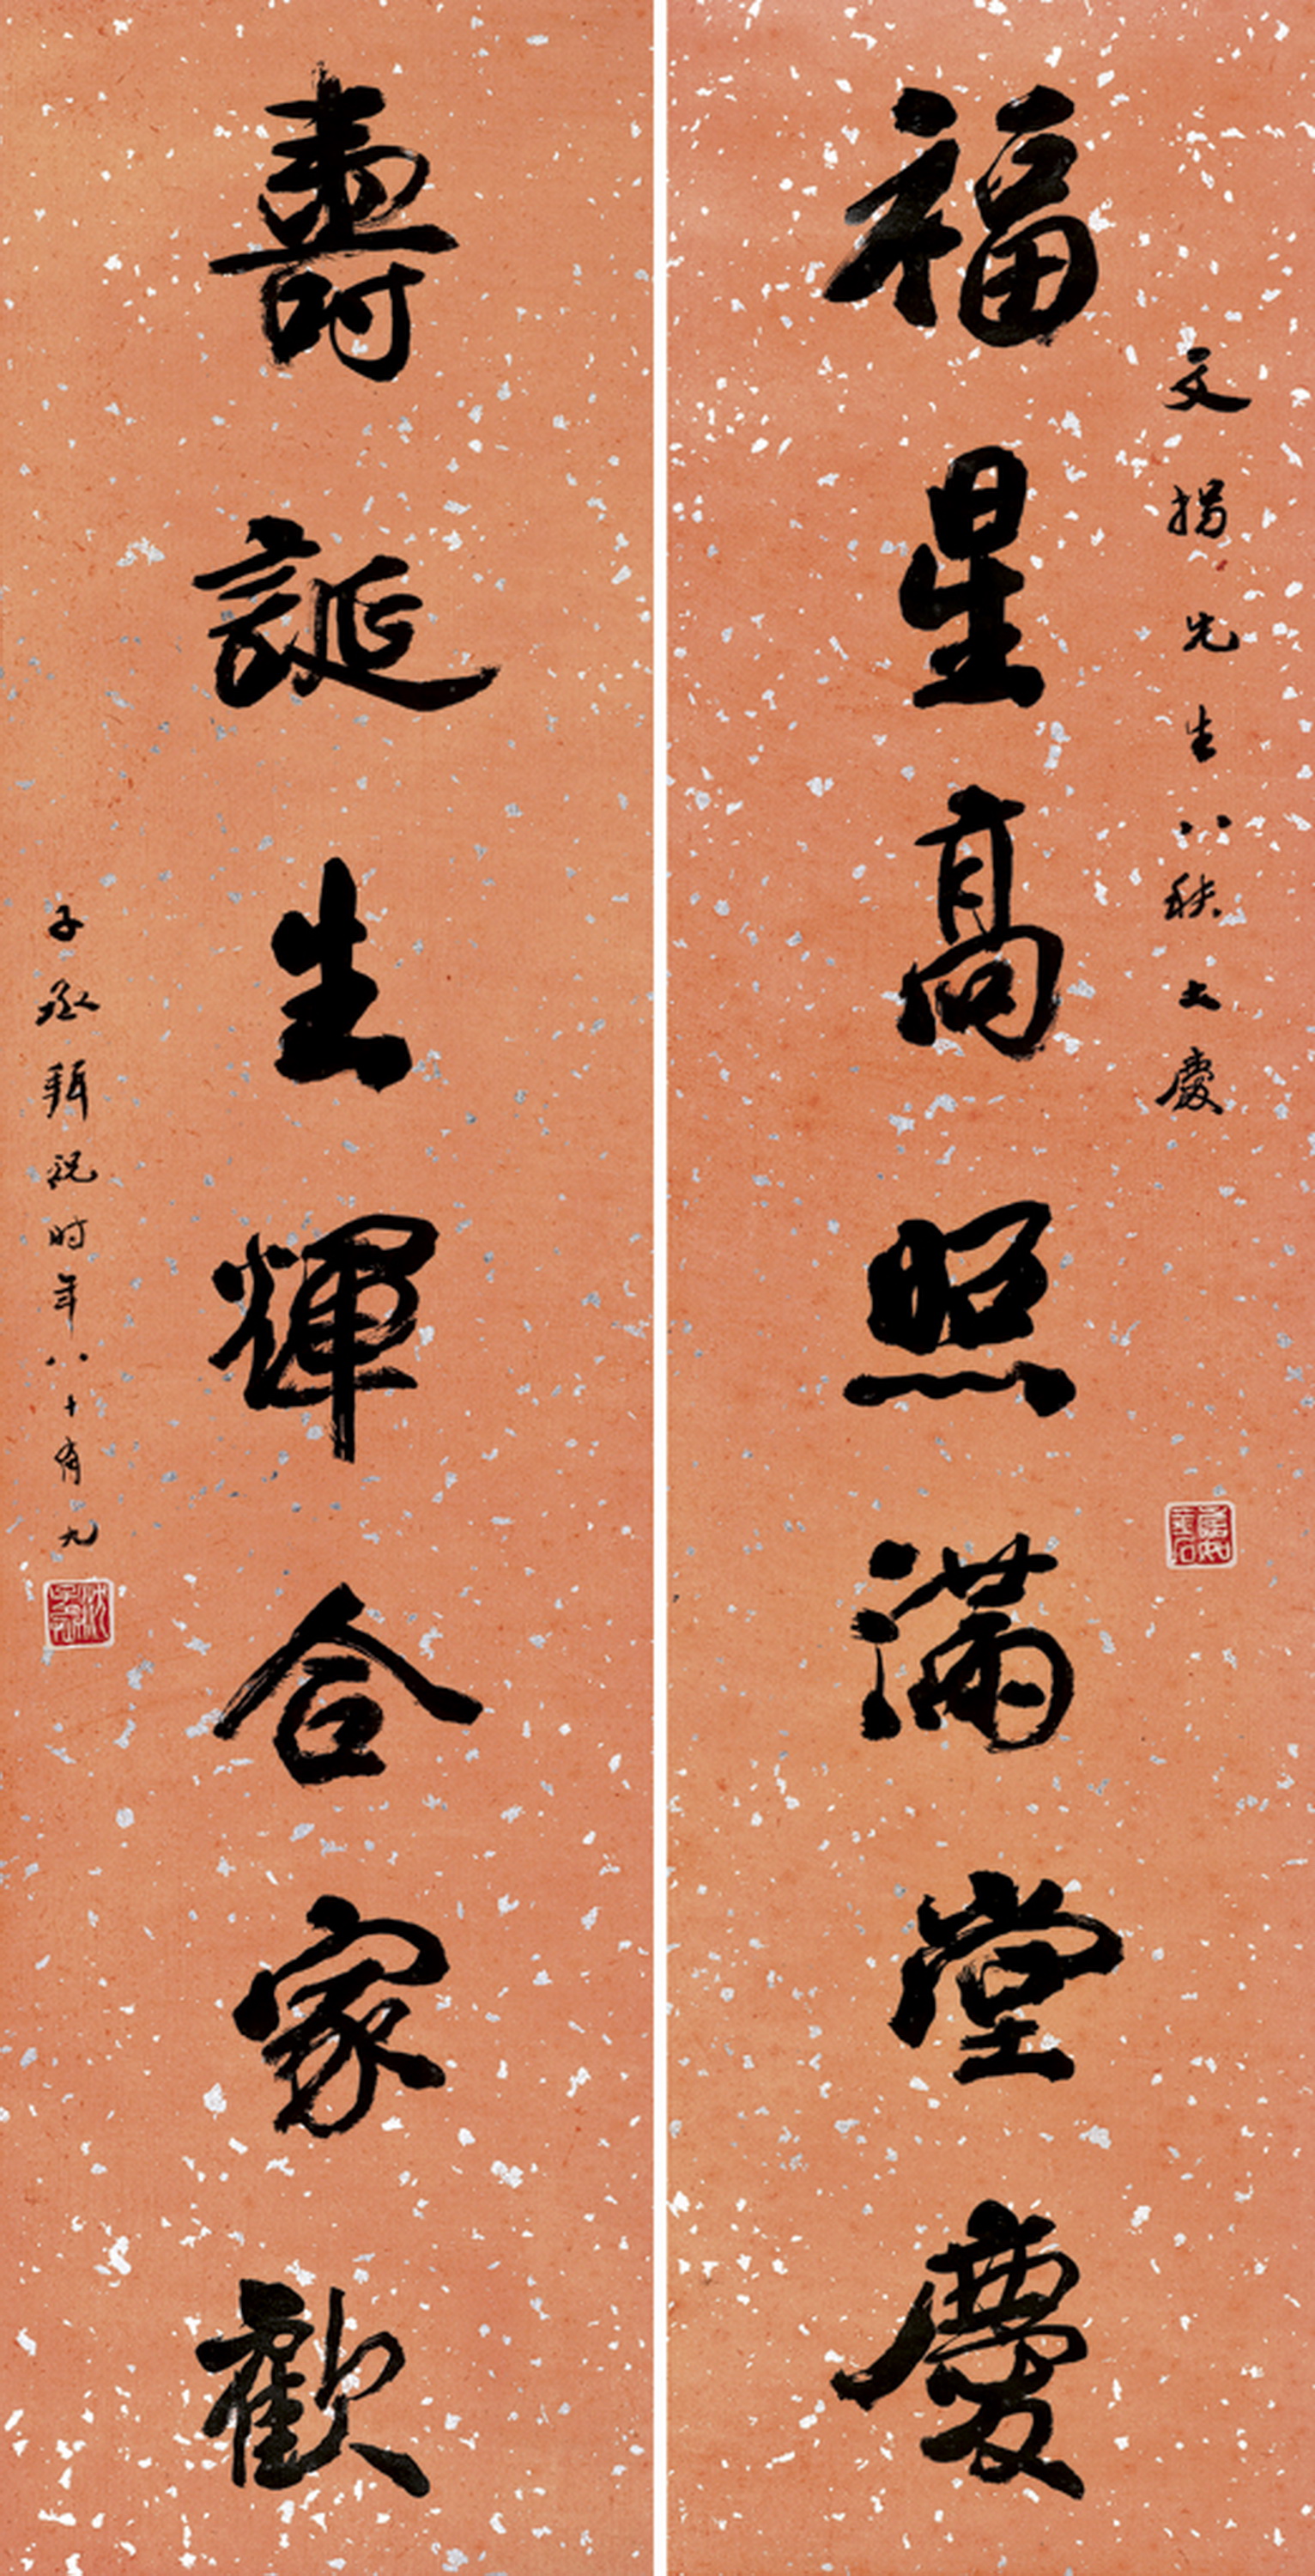 文揚先生八秩大慶
福星高照滿堂慶
壽誕生輝合家歡
子丞輯祝时年八十有九